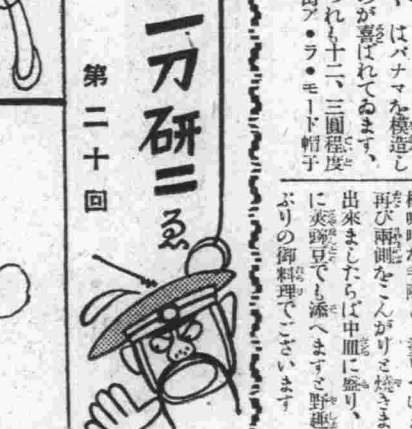 はパナマを模造し
のが喜ばれてゐます、
れも十二、三圓程度
ア・ラ・モード帽子
再び兩側をこんがりと燒きま
出來ましたらば中皿に盛り、
に莢豌豆でも添へますと野趣
ぶりの御料理でございます
一刀研二ゑ
第二十回